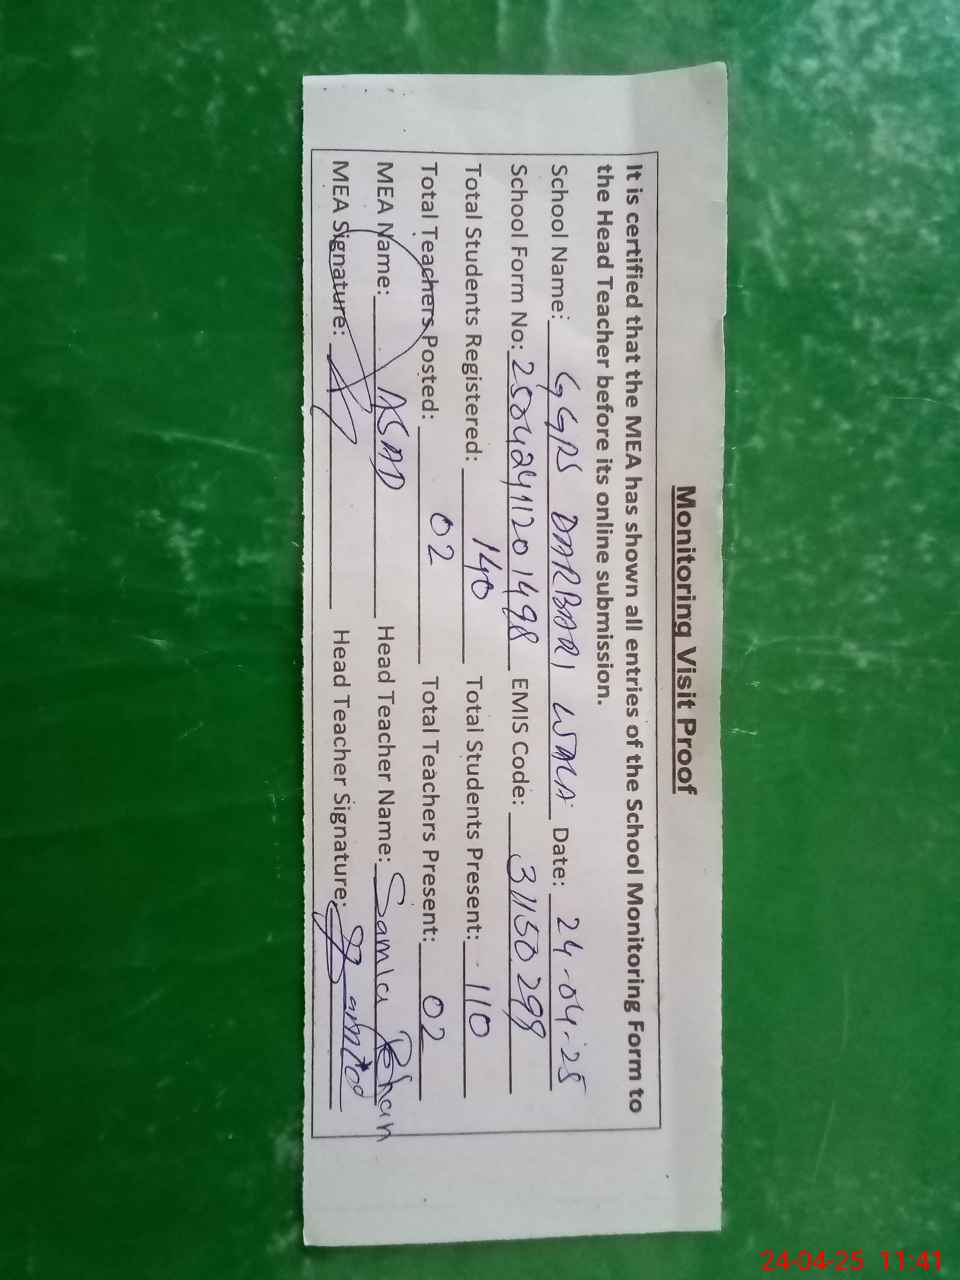 Monitoring Visit Proof
It is certified that the MEA has shown all entries of the School Monitoring Form to
the Head Teacher before its online submission.
School Name: GGPS DARBARI WALA Date: 24-04-25
School Form No: 25042411201498 EMIS Code: 31150299
Total Students Registered: 140 Total Students Present: 110
Total Teachers Posted: 02 Total Teachers Present: 02
MEA Name: ASAD Head Teacher Name: Samia
MEA Signature: Head Teacher Signature:
24-04-25 11:41